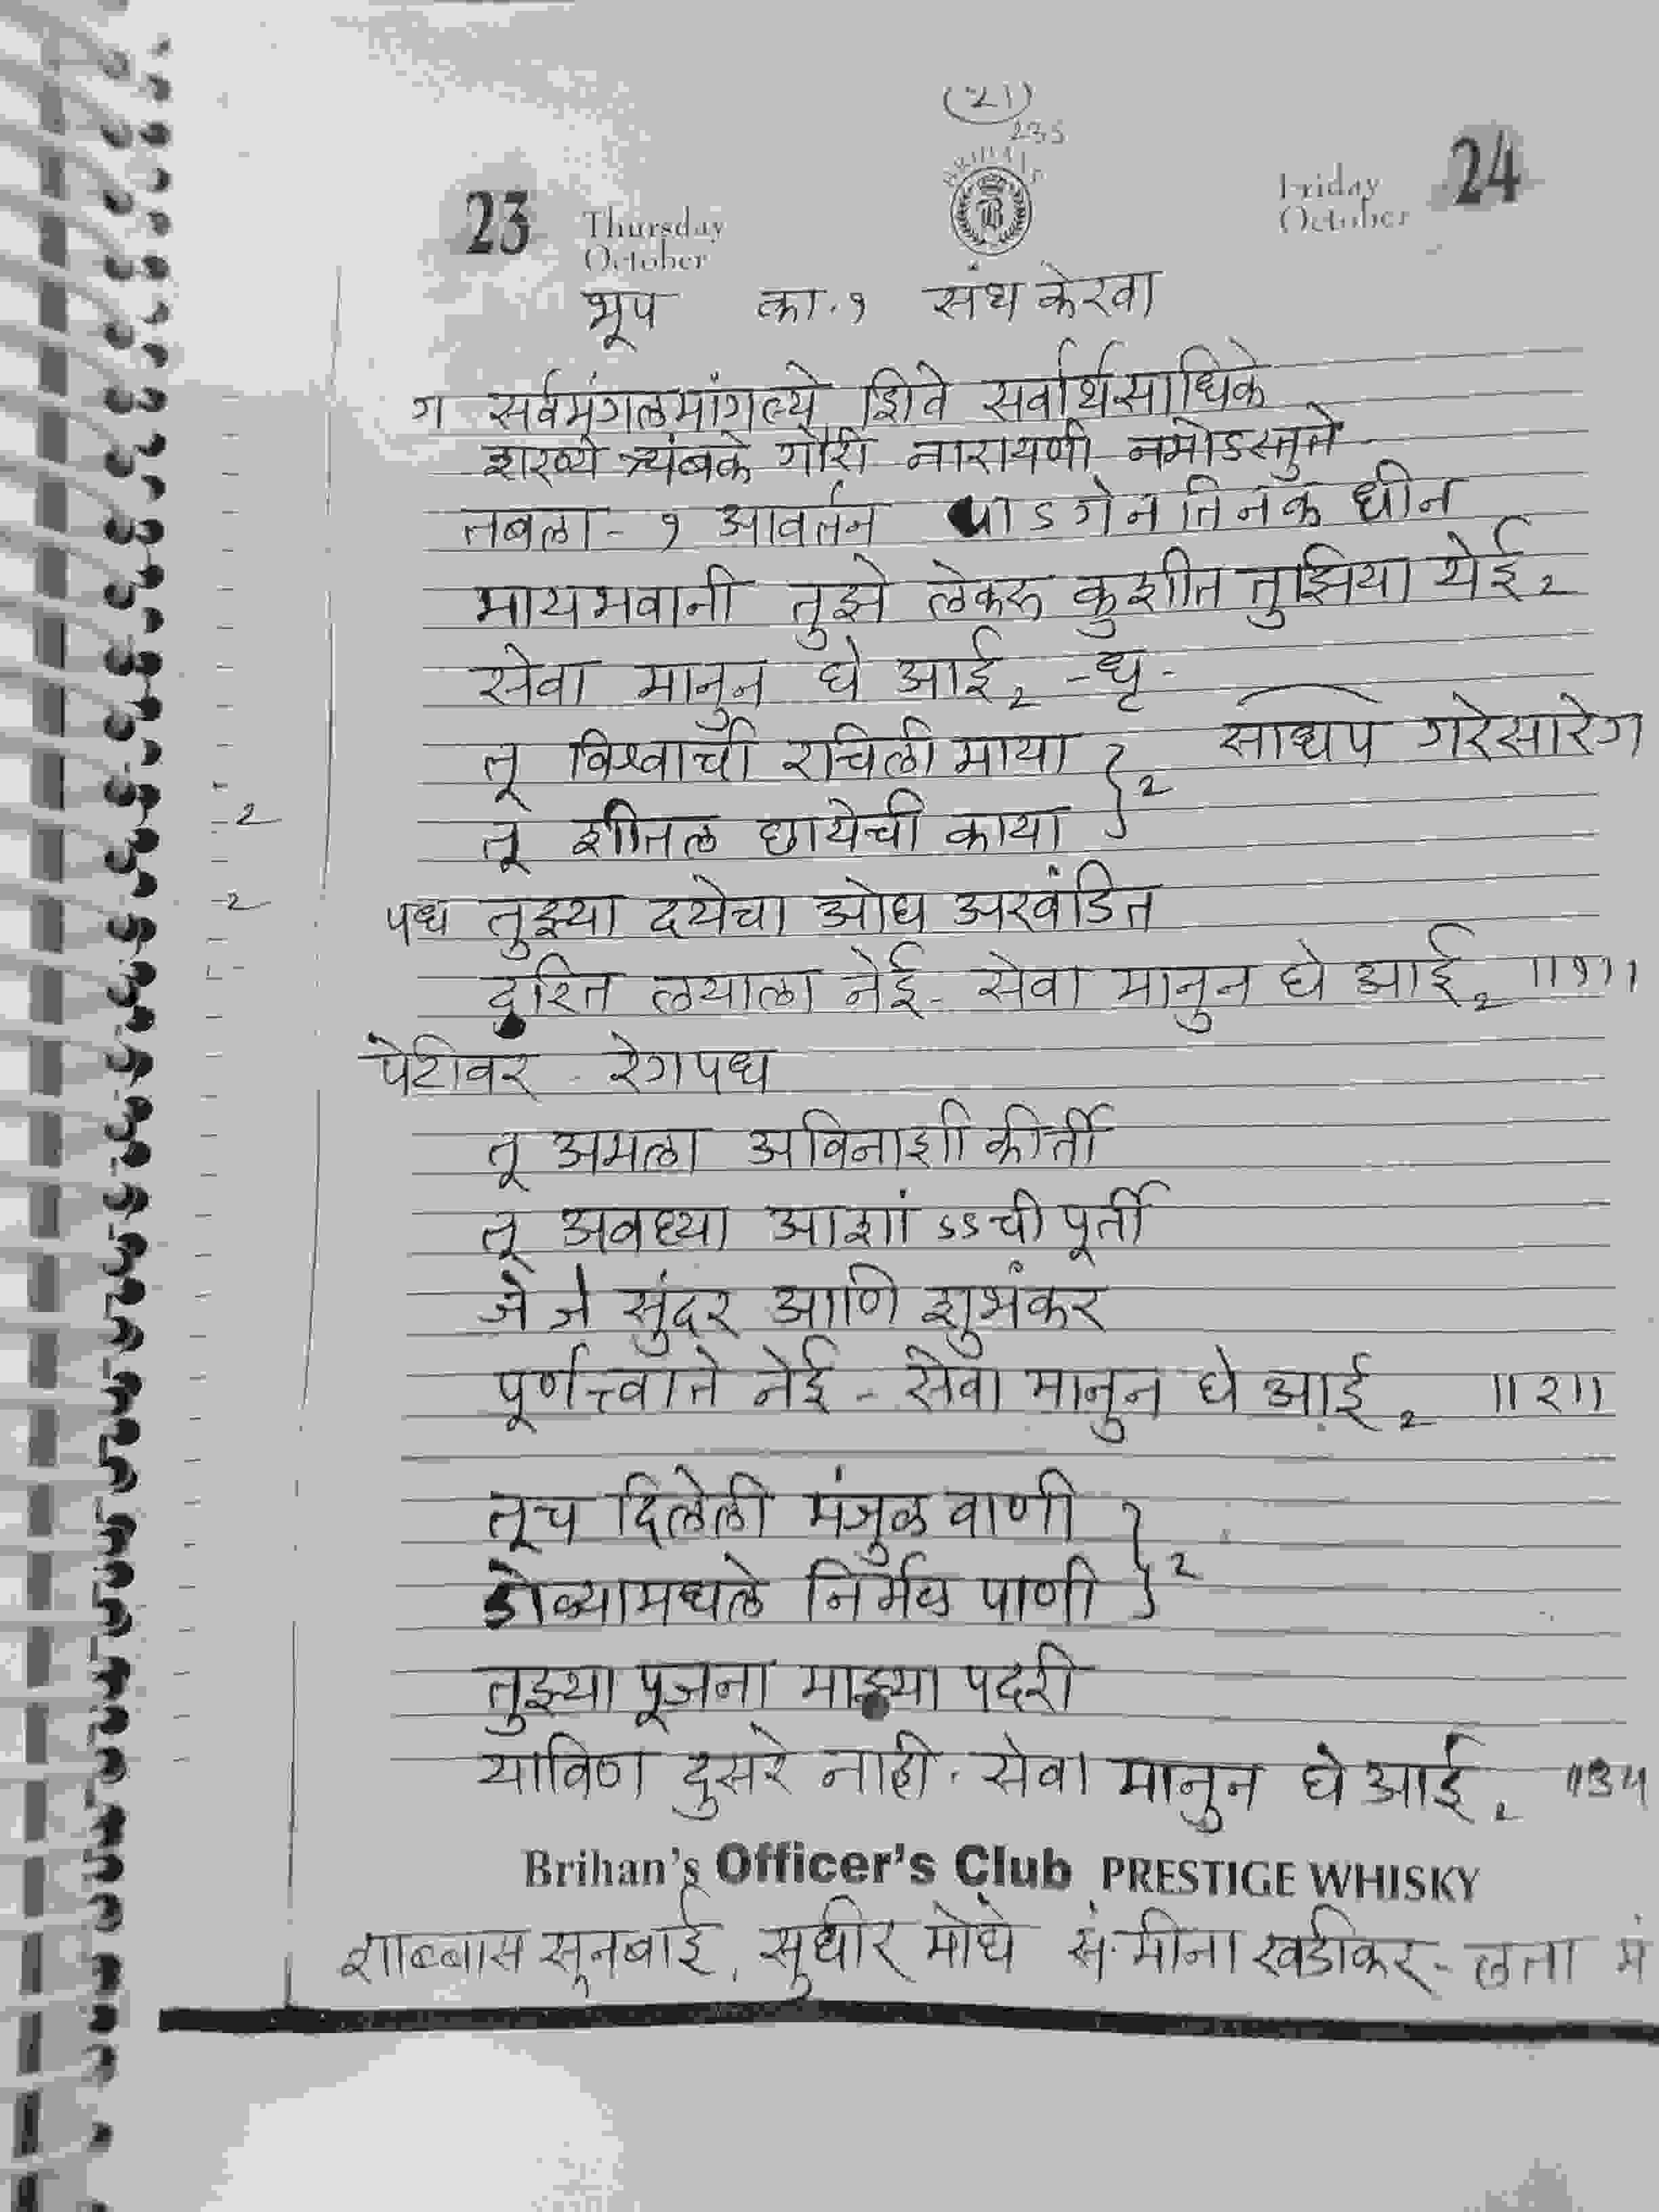 (21)
235
BRIHAN'S
23 Thursday October
Friday October 24
भूप का. १ संथ केरवा
ग सर्वमंगलमांगल्ये शिवे सर्वार्थसाधिके
शरण्ये त्र्यंबके गौरी नारायणी नमोऽस्तुते
तबला - १ आवर्तन धाऽगेन तिनक धीन
मायभवानी तुझे लेकरू कुशीत तुझिया येई २
सेवा मानुन घे आई २ - धृ -
तू विश्वाची रचिली माया } २ साधप गरेसारेग
तू शीतल छायेची काया
पध तुझ्या दयेचा ओघ अखंडित
दुरित लयाला नेई - सेवा मानुन घे आई २ ॥१॥
पेटीवर - रेगपध
तू अमला अविनाशी कीर्ती
तू अवघ्या आशांऽऽची पूर्ती
जे जे सुंदर आणि शुभंकर
पूर्णत्त्वाते नेई - सेवा मानुन घे आई २ ॥२॥
तूच दिलेली मंजुळ वाणी } २
डोळ्यामधले निर्मळ पाणी
तुझ्या पूजना माझ्या पदरी
याविण दुसरे नाही - सेवा मानुन घे आई २ ॥३॥
Brihan's Officer's Club PRESTIGE WHISKY
शाब्बास सूनबाई, सुधीर मोघे सं. मीना खडीकर - लता मं